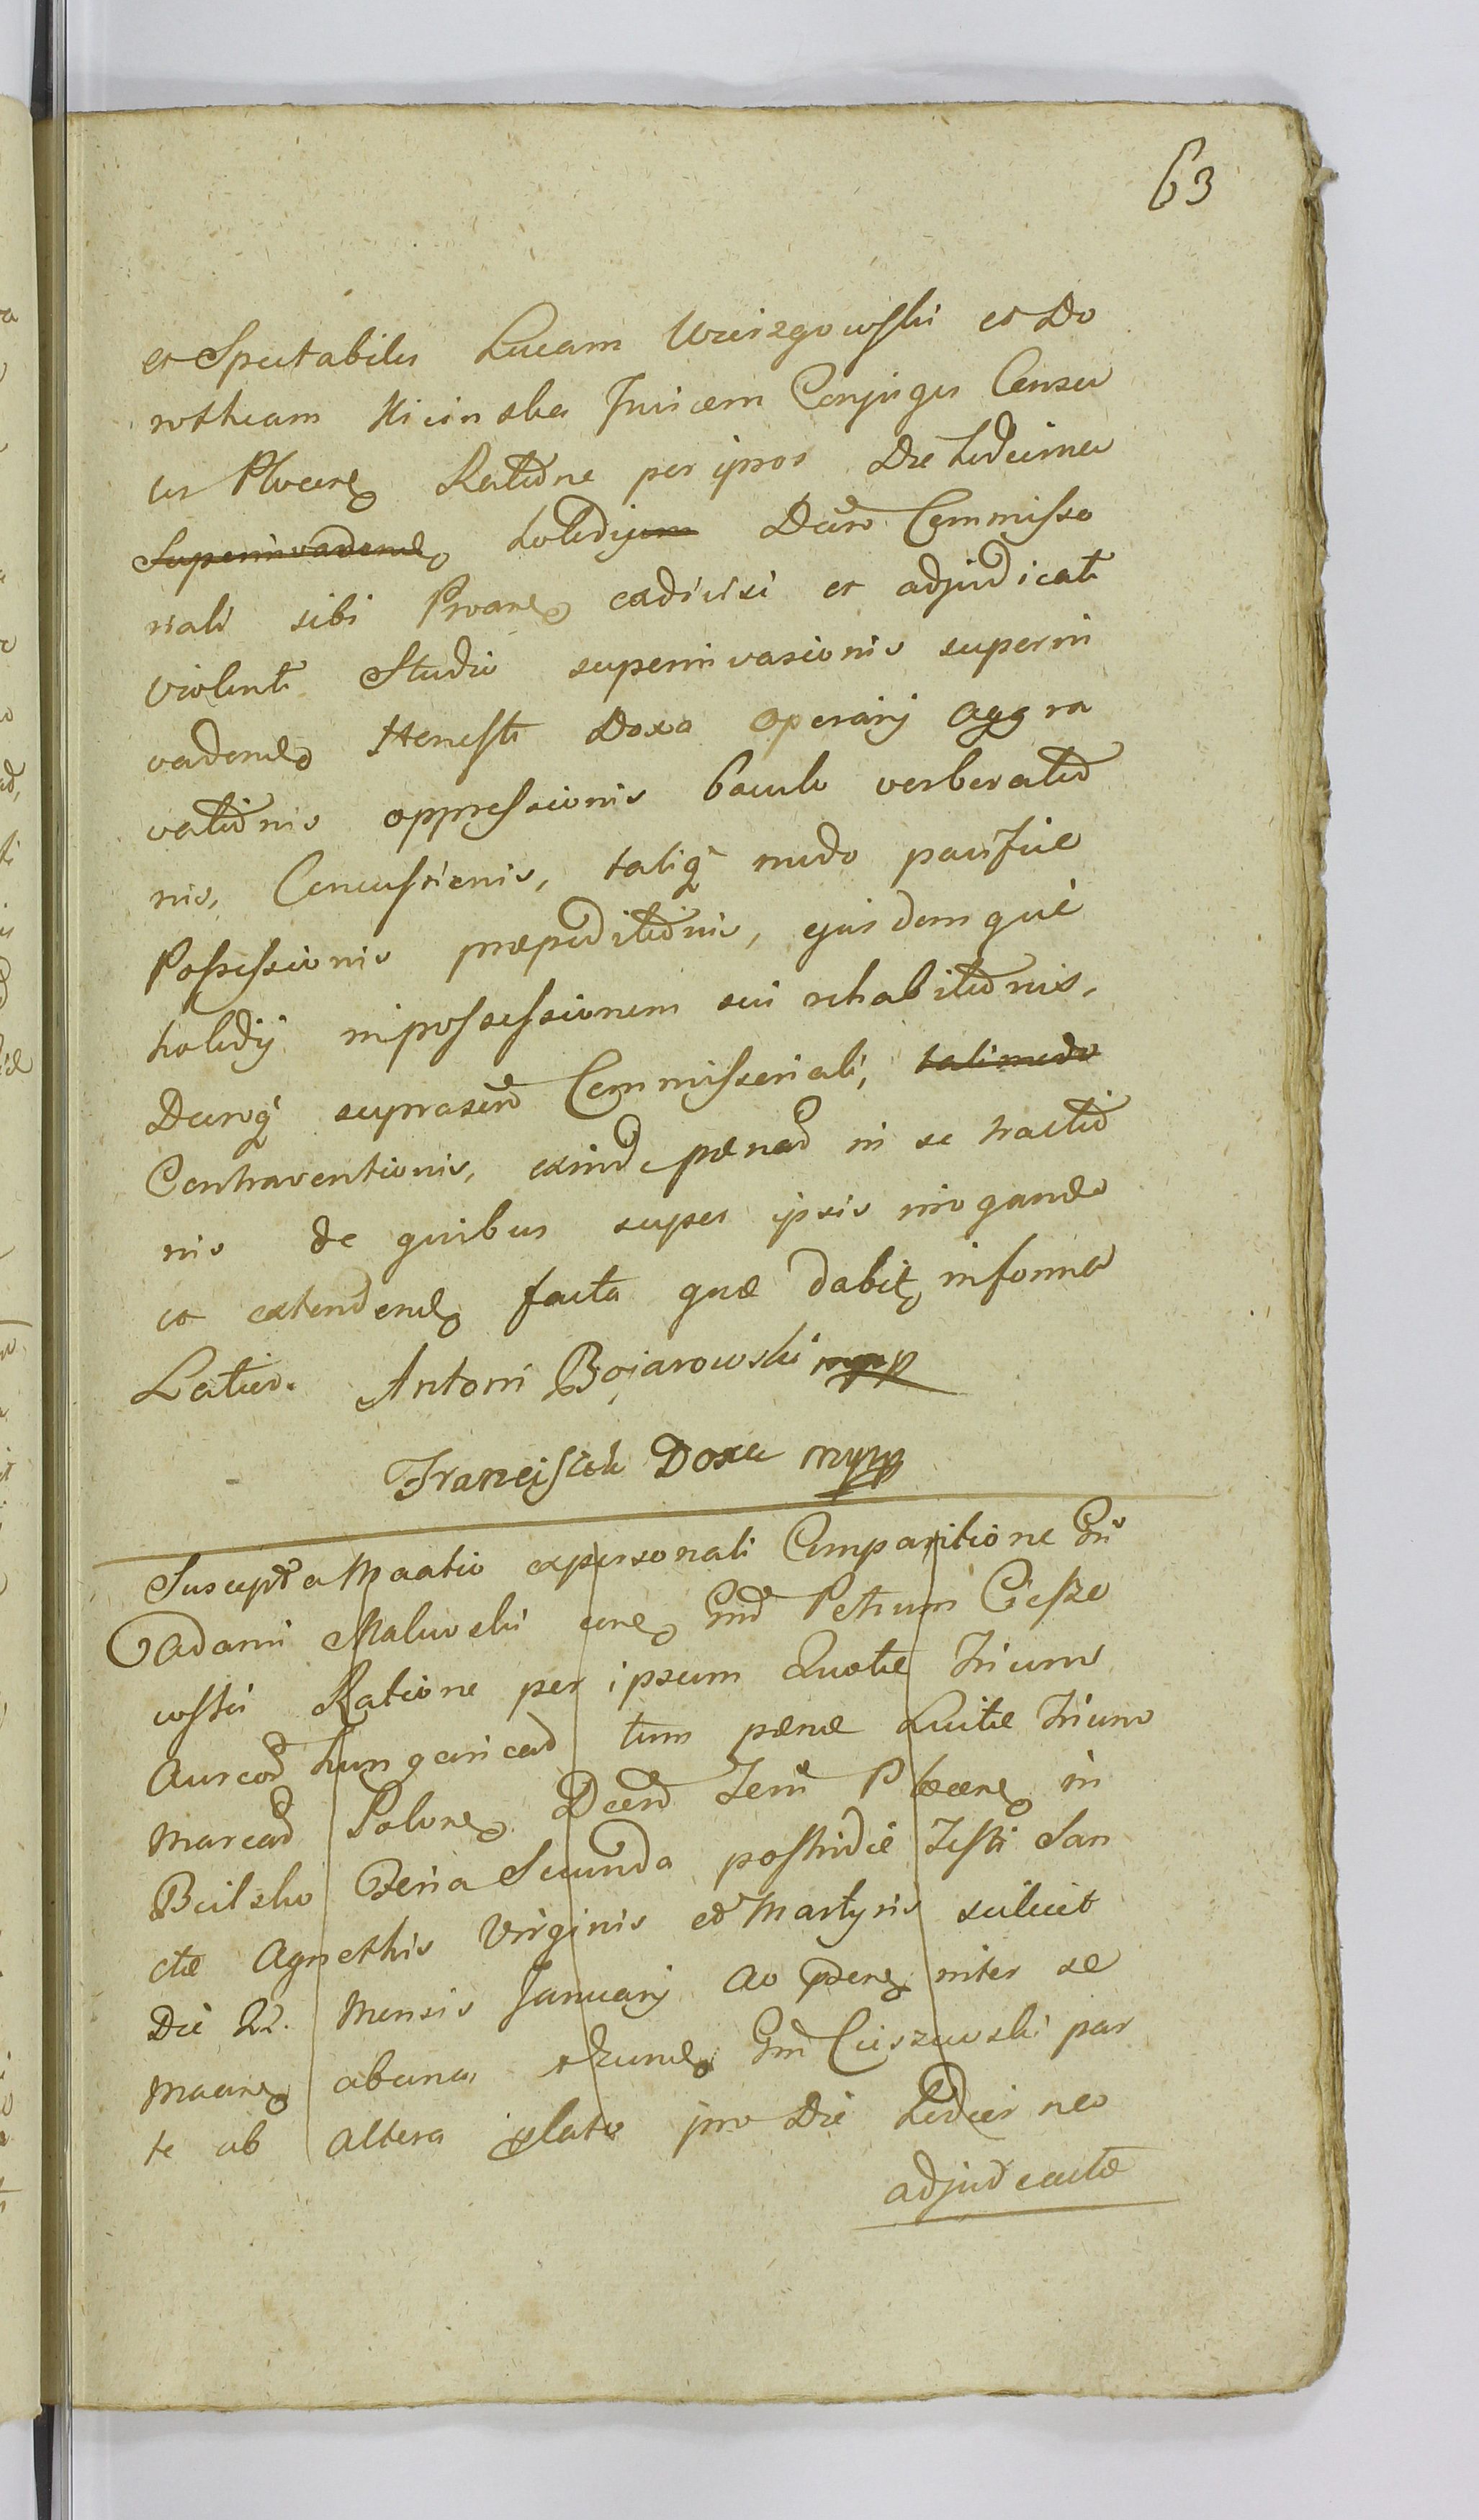 63
et Spectabiles Lucam Wierzgowski et Do
rotheam Kicinska Invicem Conjuges Censu
us Ratiōne per ipsos Die hodierna
Superinvadendo holedijum Decro Commisso
riali sibi exdivisi et adjudicati
violenti Studio superinvasionis superin
vadendo Honesti Doxa operarij aggra
vatiōnis oppressionis baculo verberatiō
nis, Concussionis, taliq modo pacificæ
Possessionis præpeditiōnis, ejusdemque
holedij in possessionem sui rehabitiōnis,
Decroq suprascrō Commissoriali, tali modo
Contraventionis, exind pœnaꝝ in se tractiō
nis de quibus super ipsis irrogando
et extendend facta quæ dabit informa
Latius. Antoni Bojarowski mpp
Franciszek Doxa mpp
Suscepta Maatio ex personali Comparitione Gñ
Adami Malewski Gnd Petrum Ciesze
wski Ratione per ipsum Quotæ trium
Aureoꝝ hungaricaꝝ tum pœnæ Luitæ trium
Marcaꝝ Polon in
Bielsko Feria Secunda postridie Festi San
ctæ Agnethis Virginis et Martyris scilicet
Die 22. Mensis Januarij Ao inter se
ab una, Gnd Cieszewski par
te ab altera lato pro Die hodier na
adjudcactæ